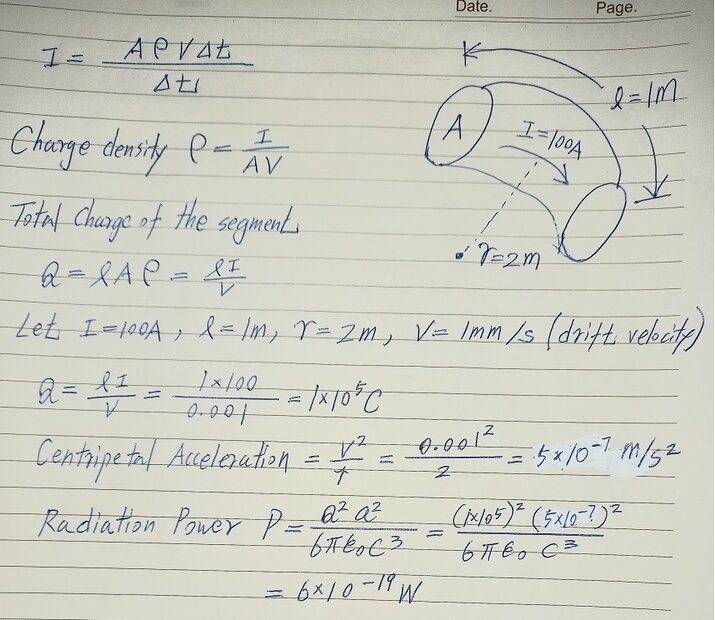 Date. Page.
I = AρVΔt / Δt
Charge density ρ = I / AV
A
I=100A
l=1M
r=2m
Total Charge of the segment
Q = lAρ = lI / V
Let I=100A, l=1m, r=2m, V=1mm/s (drift velocity)
Q = lI / V = 1x100 / 0.001 = 1x10⁵C
Centripetal Acceleration = V² / r = 0.001² / 2 = 5x10⁻⁷ m/s²
Radiation Power P = Q²a² / 6πε₀C³ = (1x10⁵)² (5x10⁻⁷)² / 6πε₀ C³
= 6x10⁻¹⁹W